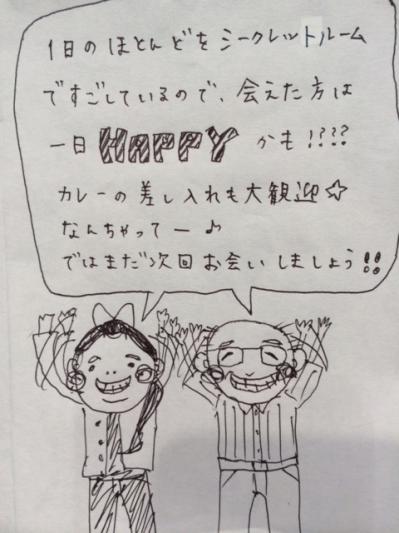 1日のほとんどをシークレットルーム
ですごしているので、会えた方は
一日HAPPYかも!????
カレーの差し入れも大観迎☆
なんちゃってー♪
ではまだ次回お会いしましょう!!